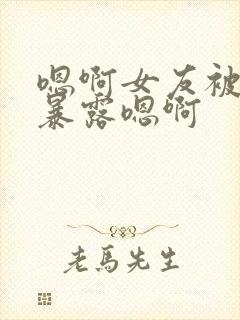 嗯啊女友被
暴露嗯啊
老馬先生